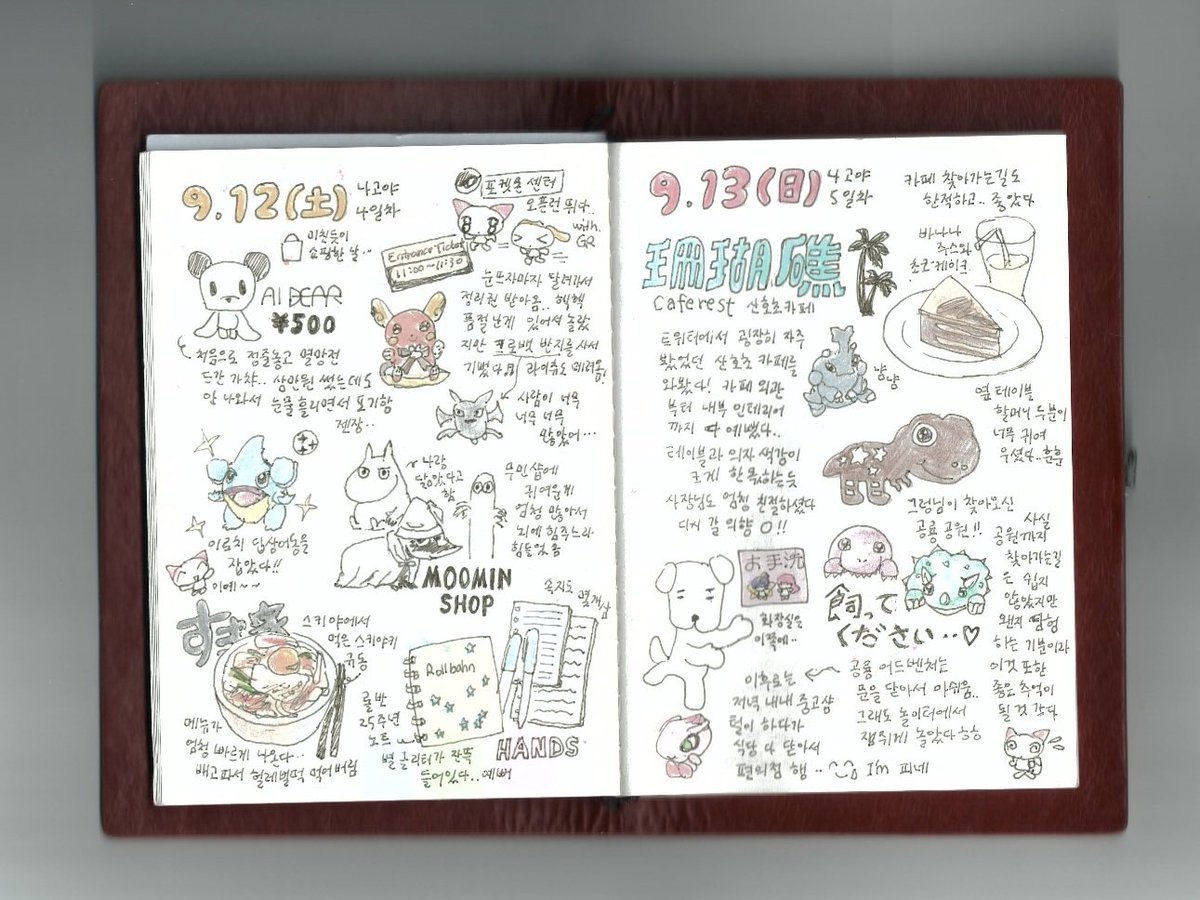 9.12(土)
나고야
4일차
미친듯이
쇼핑한 날...
AI DEAR
¥500
처음으로 정줄놓고 열망전
드간 가챠.. 삼만원 썼는데도
안 나와서 눈물 흘리면서 포기함
젠장..
포켓몬 센터
오픈런 뛰다..
with.
GR
Entrance Ticket
11:00~11:30
눈뜨자마자 달려가서
정리권 받아옴.. 헥헥
품절난게 있어서 놀랐
지만 크로뱃 반지를 사서
기뻤다
라이츄도 데려옴!
사람이 너무
너무 너무
많았어...
이로치 딥상어동을
잡았다!!
이예~~
나랑
닮았다고
함
무민샵에
귀여운게
엄청 많아서
뇌에 힘주느라
힘들었음
MOOMIN
SHOP
すき家
스키야에서
먹은 스키야키
규동
메뉴가
엄청 빠르게 나온다...
배고파서 헐레벌떡 먹어버림
롤반
25주년
노트
Rollbahn
별 글리터가 잔뜩
들어있다.. 예뻐
속지도 몇개 삼
HANDS
9.13(日)
나고야
5일차
카페 찾아가는길도
한적하고.. 좋았다
珊瑚礁
Caferest 산호초카페
바나나
주스와
초코케이크
트위터에서 굉장히 자주
봤었던 산호초 카페를
와봤다! 카페 외관
부터 내부 인테리어
까지 다 예뻤다..
테이블과 의자 색감이
크게 한몫하는듯
사장님도 엄청 친절하셨다
다시 갈 의향 O!!
냥냥
옆 테이블
할머니 두분이
너무 귀여
우셨다.. 훈훈
그렁님이 찾아오신
공룡 공원!!
사실
공원까지
찾아가는길
은 쉽지
않았지만
왠지 탐험
하는 기분이라
이것 또한
좋은 추억이
될 것 같다
お手洗
화장실은
이쪽에..
飼って
ください..♡
공룡 어드벤처는
문을 닫아서 아쉬움..
그래도 놀이터에서
잼쒸게 놀았다 하하
이후로는
저녁 내내 중고샵
털이 하다가
식당 다 닫아서
편의점 행.. I'm 피네